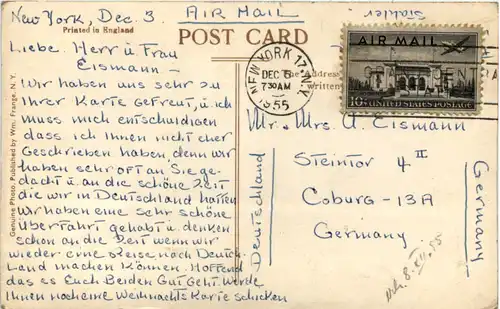 New York, Dec. 3.
AIR MAIL
Printed in England
POST CARD
Liebe Herr ü Frau
Eismann —
Wir haben uns sehr zu
Ihrer Karte gefreut, ü ich
muss mich entschuldigen
dass ich Ihnen nicht eher
Geschrieben haben, denn wir
haben sehr oft an Sie ge-
dacht ü an die schöne Zeit
die wir in Deutschland hatten
Wir haben eine sehr schöne
Überfahrt gehabt ü denken
schon an die Zeit wenn wir
wieder eine Reise nach Deutch-
Land machen können. Hoffend
das es Euch Beiden Gut Geht Werde
Ihnen noch eine Weihnachts Karte schicken
Genuine Photo, Published by Wm. Frange, N.Y.
NEW YORK 17, N.Y.
DEC 6
7 30 AM
1955
The Address
written
AIR MAIL
10¢ UNITED STATES POSTAGE
Mr. Mrs. A. Eismann
Steintor 4 II
Coburg - 13A
Germany
Deutschland
Germany
8. XII. 55